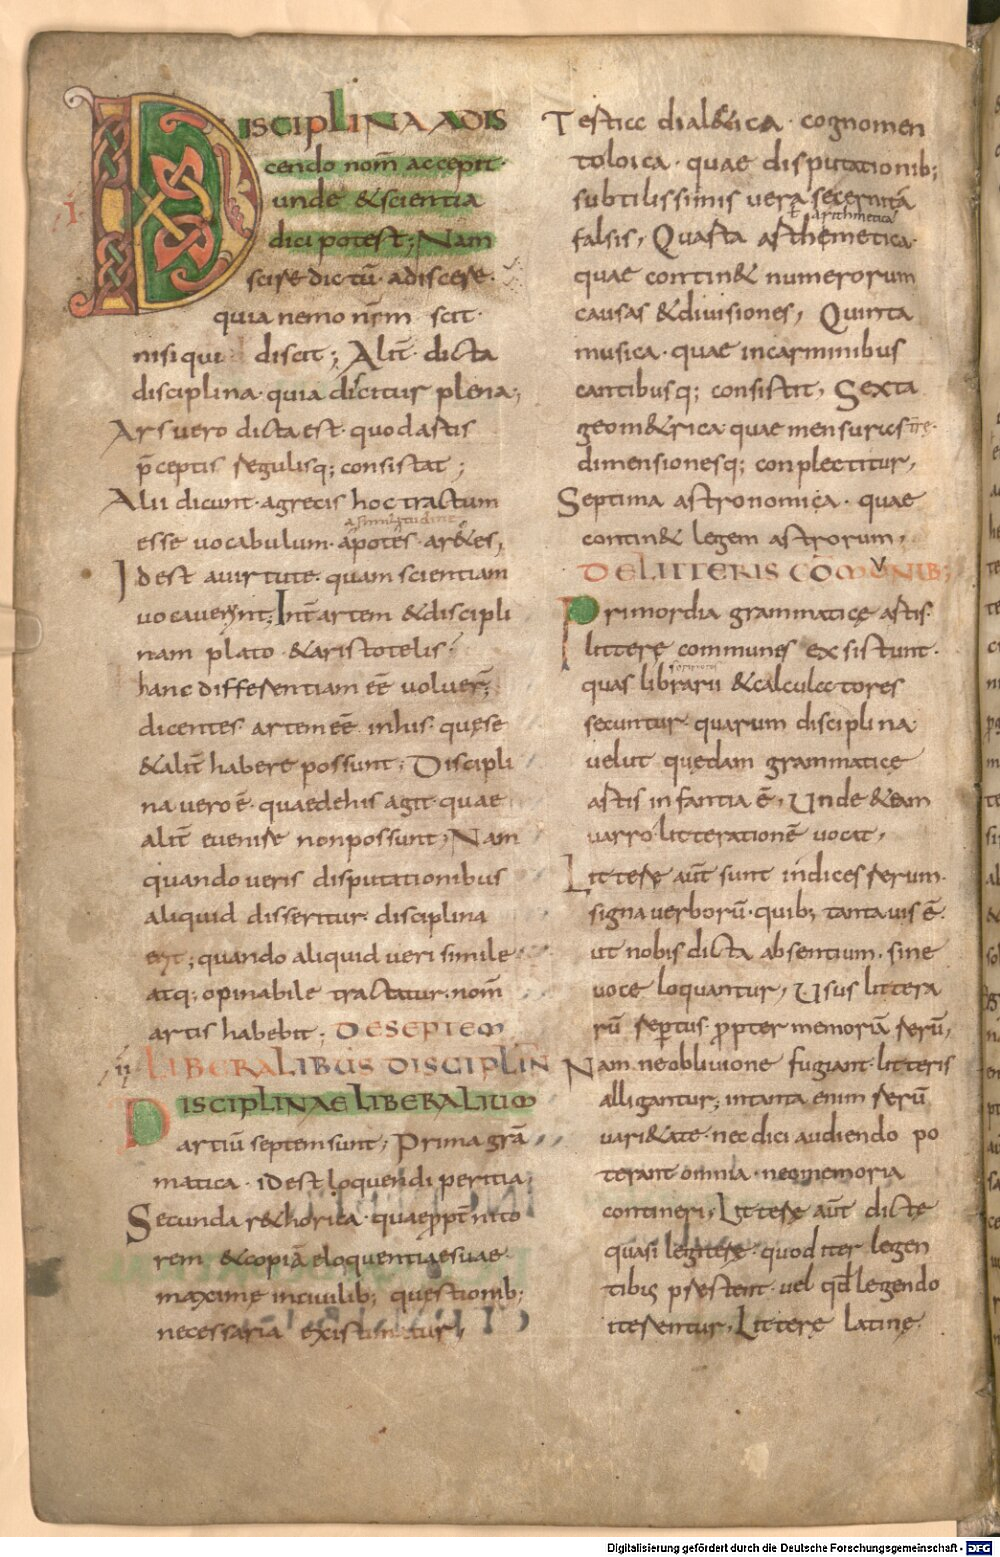 DISCIPLINA A DIS
cendo nom̄ accepit·
unde &scientia
dici potest; Nam
scire dictū· a discere·
quia nemo nr̄m scit·
nisi qui discit; Alit̄· dicta
disciplina· quia discitur plena;
Ars vero dicta est· quod artis
p̄ceptis regulisq; consistat;
Alii dicunt· agrecis hoc tractum
a similitudine
esse vocabulum· apotes ar&es,
Id est a uirtute· quam scientiam
uocauerunt; Int̄ artem &discipli
nam plato &aristotelis·
hanc differentiam eē uoluer̄;
dicentes artem eē inhis· quęse
&alit̄ habere possunt; Discipli
na uero ē· quae dehis agit· quae
alit̄ euenire non possunt; Nam
quando ueris disputationibus
aliquid disseritur· disciplina
erit; quando aliquid ueri simile
atq; opinabile tractatur· nom̄
artis habebit; DE SEPTEM
ii LIBERALIBUS DISCIPLIN̄
DISCIPLINAE LIBERALIUM
artiū septem sunt; Prima grā
matica· id est loquendi peritia;
Secunda r&horica· quae ppt̄ nito
rem &copiā eloquentiae suae·
maxime in ciuilib; questionib;
necessaria existimatur;
Tertice dial&ica· cognomen
to loica· quae disputationib;
subtilissimis uera secernit a
ł arithmetica
falsis; Quarta arthemetica·
quae contin& numerorum
causas &diuisiones; Quinta
musica· quae in carminibus
cantibusq; consistit; Sexta
geom&rica quae mensuras
dimensionesq; conplectitur;
Septima astronomica· quae
contin& legem astrorum;
DE LITTERIS COMVNIB;
Primordia grammaticę artis·
litterę communes existunt·
quas librarii &calculatores
secuntur quarum disciplina
uelut quędam grammaticę
artis infantia ē; Unde &eam
uarro litterationē uocat;
Litterę aut̄ sunt indices rerum·
signa uerborū· quib; tanta uis ē·
ut nobis dicta absentium· sine
uoce loquantur; Usus littera
rū rep̱tus ꝓpter memoriā rerū;
Nam ne obliuione fugiant· litteris
alligantur; in tanta enim rerū
uari&ate· nec dici audiendo po
terant omnia· nec memoria
contineri; Litterę aut̄ dictę
quasi legiterę· quod iter legen
tibus prestent· uel qđ legendo
iterentur; Litterę latinę·
Digitalisierung gefördert durch die Deutsche Forschungsgemeinschaft - DFG